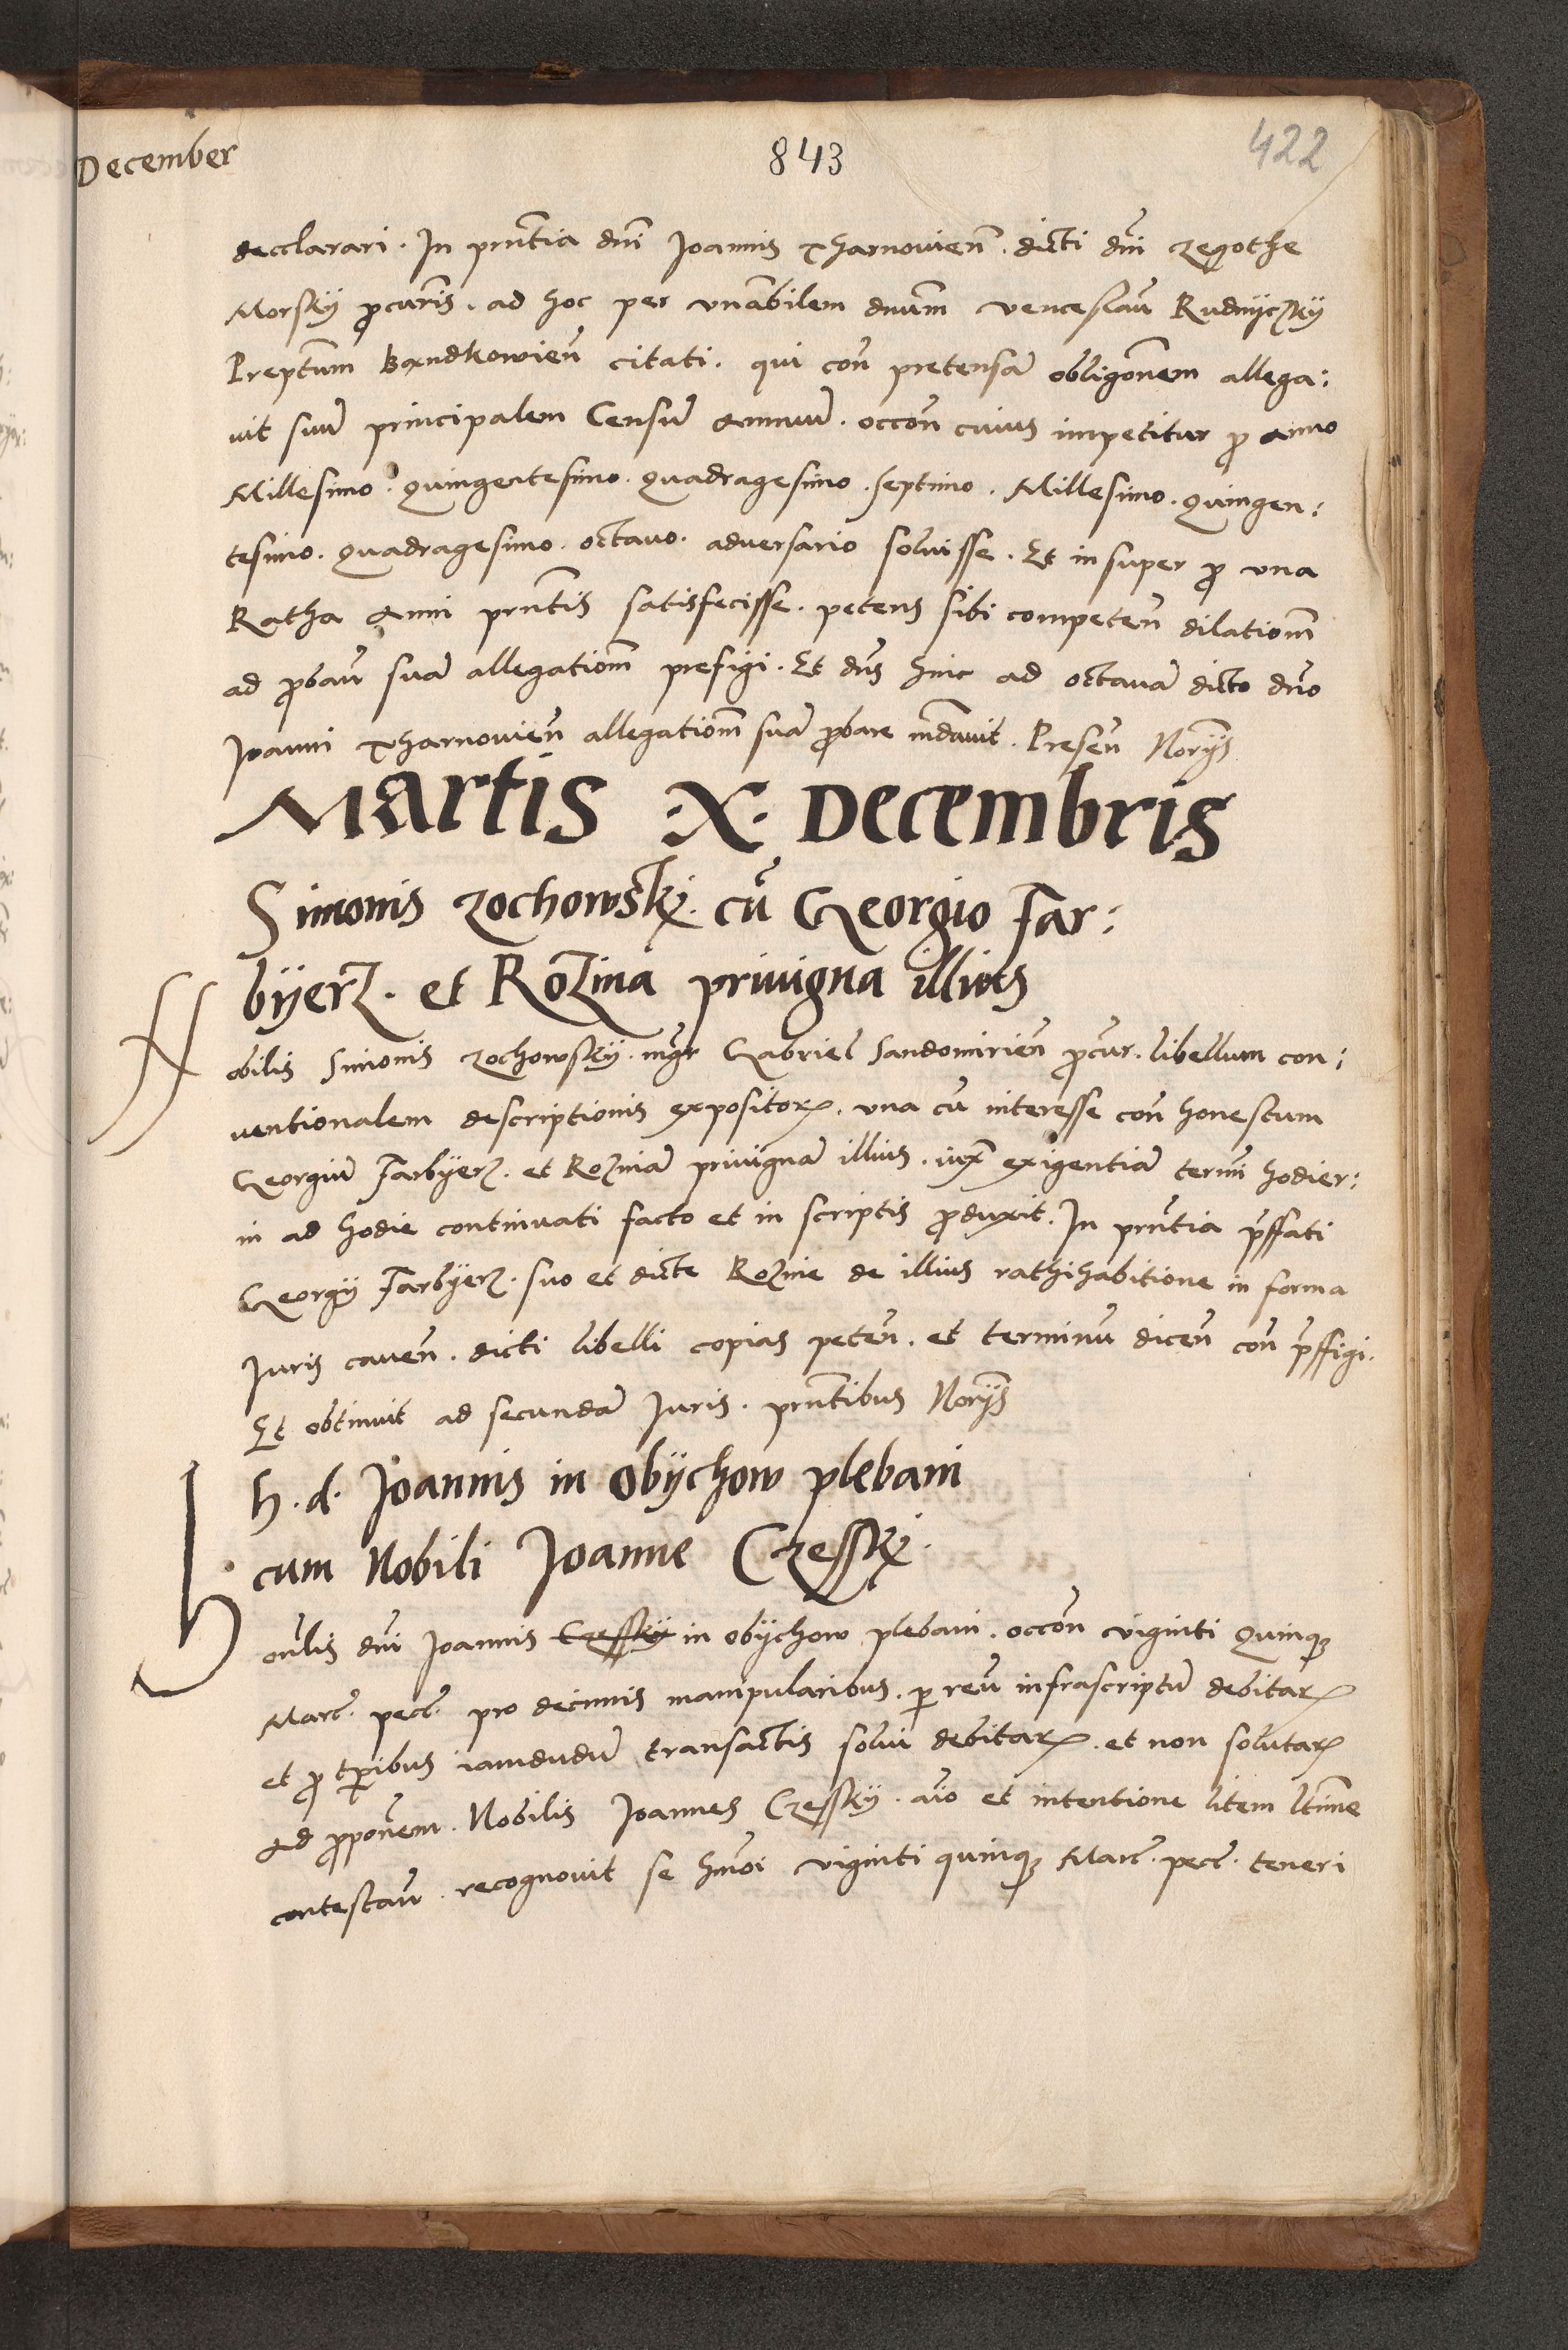 December
843
422
decclarari. In pñtia dñi Joannis Tharnovieñ. dicti dñi Zegothe
Morskÿ ꝓcuris. ad hoc per vnãbilem dnum vencesla͂u Rudnÿczkÿ
Preptum Bandkowieñ citati. qui coñ pretensã obligõnem allega:
vit suũ principalem Censũ Annuũ. occoñ cuius impetitur ꝓ Anno
Millesimo. Quingentesimo. Quadragesimo. septimo. Millesimo. Quingen:
tesimo. Quadragesimo. octavo. adversario solvisse. Et insuper ꝓ vna
Ratha Anni pñtis satisfecisse. petens sibi competeñ dilationẽ
ad ꝓbañ suã allegationẽ prefigi. Et dñs hinc ad octavã dicto dño
Joanni Tharnovieñ allegationẽ suã ꝓbare mãdavit. Preseñ Norÿs
Martis .X. Decembris
Simonis Zochowskÿ. cũ Georgio Far:
bÿerz. et Rozina privigna illius
N
obilis Simonis Zochowskÿ. mgr Gabriel Sandomirieñ ꝓcur. libellum con:
ventionalem descriptionis expositoꝝ. vna cũ interesse coñ honestum
Georgiũ Farbÿerz. et Rozinã privignã illius. iuxͣ exigentiã termĩ hodier:
ni ad hodie continuati facto et in scriptis ꝓduxit. In pñtia p̃ffati
Georgÿ Farbÿerz. suo et dicte Rozine de illius rathihabitione in forma
Juris caveñ. dicti libelli copias peteñ. et terminũ diceñ coñ p̃ffigi.
Et obtinuit ad secundã Juris. pñtibus Norÿs
h. d. Joannis in Obÿchow plebani
cum Nobili Joanne Czesskÿ.
H
onlis dñi Joannis Czesskÿ in Obÿchow plebani. occoñ viginti Quinqꝫ
Marc̃. pecc̃. pro decimis manipularibus. ꝑ reũ infrascriptũ debitaꝝ
et ꝓ tꝑibus iamdudũ transactis solvi debitaꝝ. et non solutaꝝ
Ad ꝓpoñem. Nobilis Joannes Czesskÿ. aĩo et intentione litem ltĩme
contestañ. recognovit se hmõi viginti quinqꝫ Marc̃. pecc̃. teneri